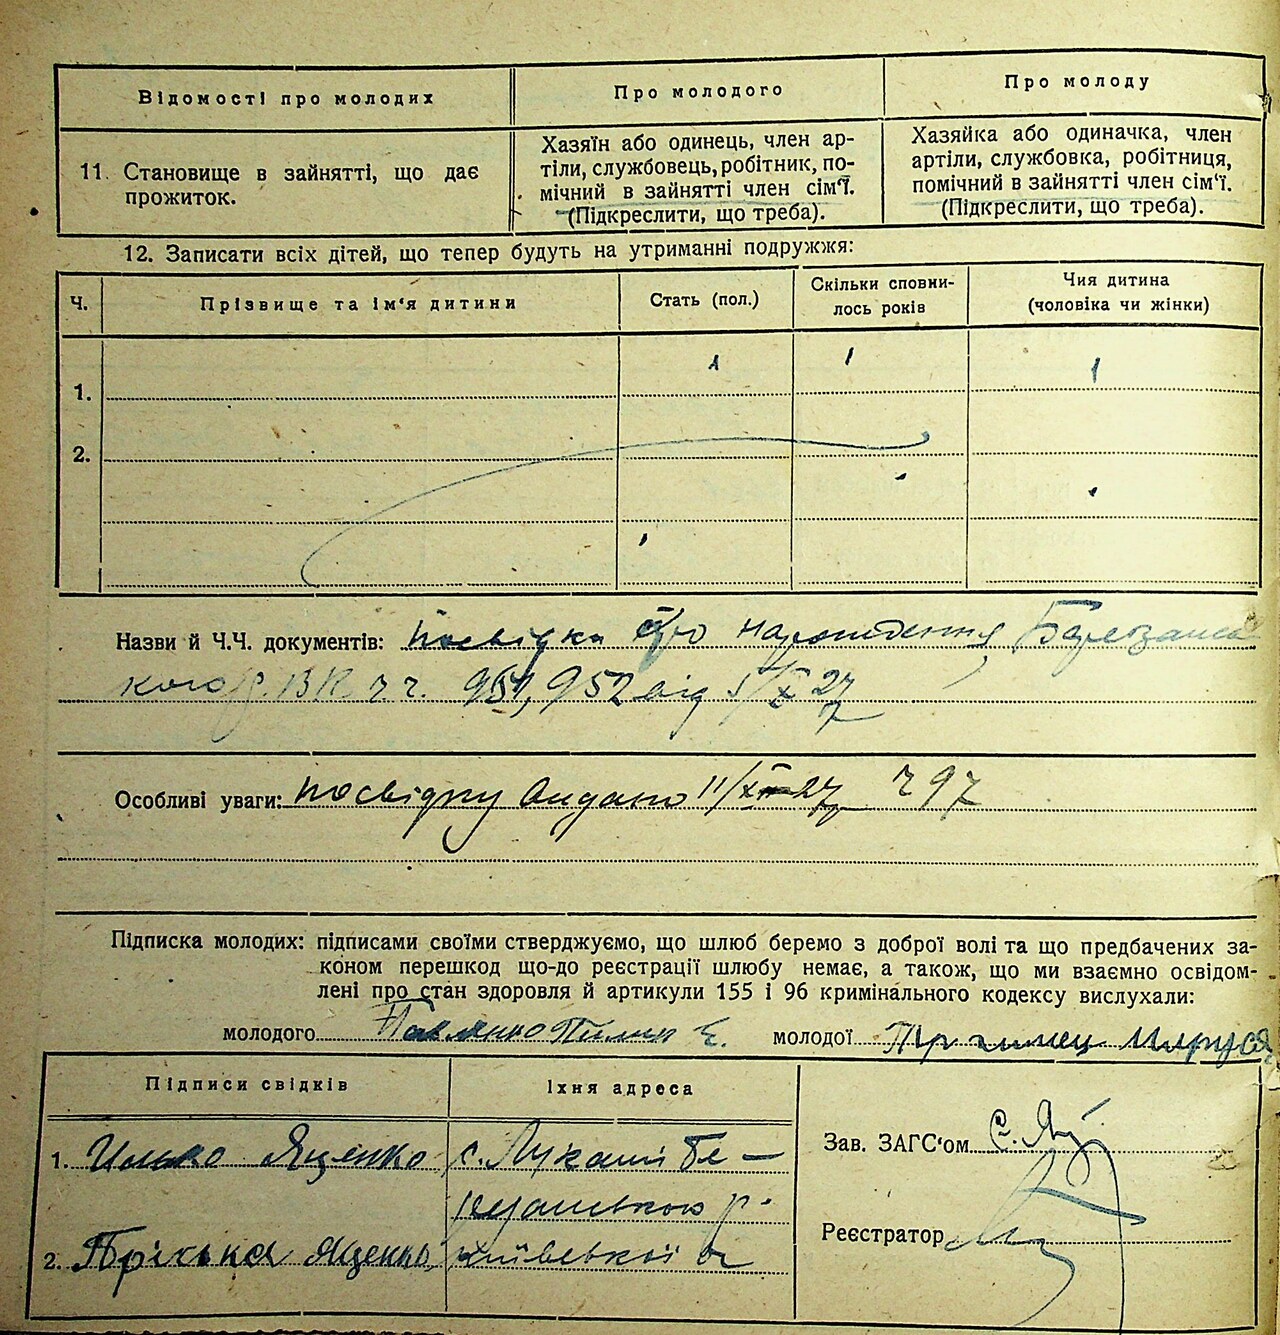 Відомості про молодих
Про молодого
Про молоду
11. Становище в зайнятті, що дає
прожиток.
Хазяїн або одинець, член ар-
тіли, службовець, робітник, по-
мічний в зайнятті член сім'ї.
(Підкреслити, що треба).
Хазяйка або одиначка, член
артіли, службовка, робітниця,
помічний в зайнятті член сім'ї.
(Підкреслити, що треба).
12. Записати всіх дітей, що тепер будуть на утриманні подружжя:
Ч.
Прізвище та ім'я дитини
Стать (пол.)
Скільки сповни-
лось років
Чия дитина
(чоловіка чи жінки)
1.
2.
Назви й Ч.Ч. документів: посвідка про народження, Березансь
кого р. ВК чч. 951, 952 від 27
Особливі уваги: посвідку видано 11/XI-27 ч 97
Підписка молодих: підписами своїми стверджуємо, що шлюб беремо з доброї волі та що предбачених за-
коном перешкод що-до реєстрації шлюбу немає, а також, що ми взаємно освідом-
лені про стан здоровля й артикули 155 і 96 кримінального кодексу вислухали:
молодого Павленко Пилип Є. молодої Маруся
Підписи свідків
Їхня адреса
1. Илько Яценко
с. Лукаші Бе-
резанського р.
2. Пріська Яценко
Київської о
Зав. ЗАГС'ом
Реєстратор